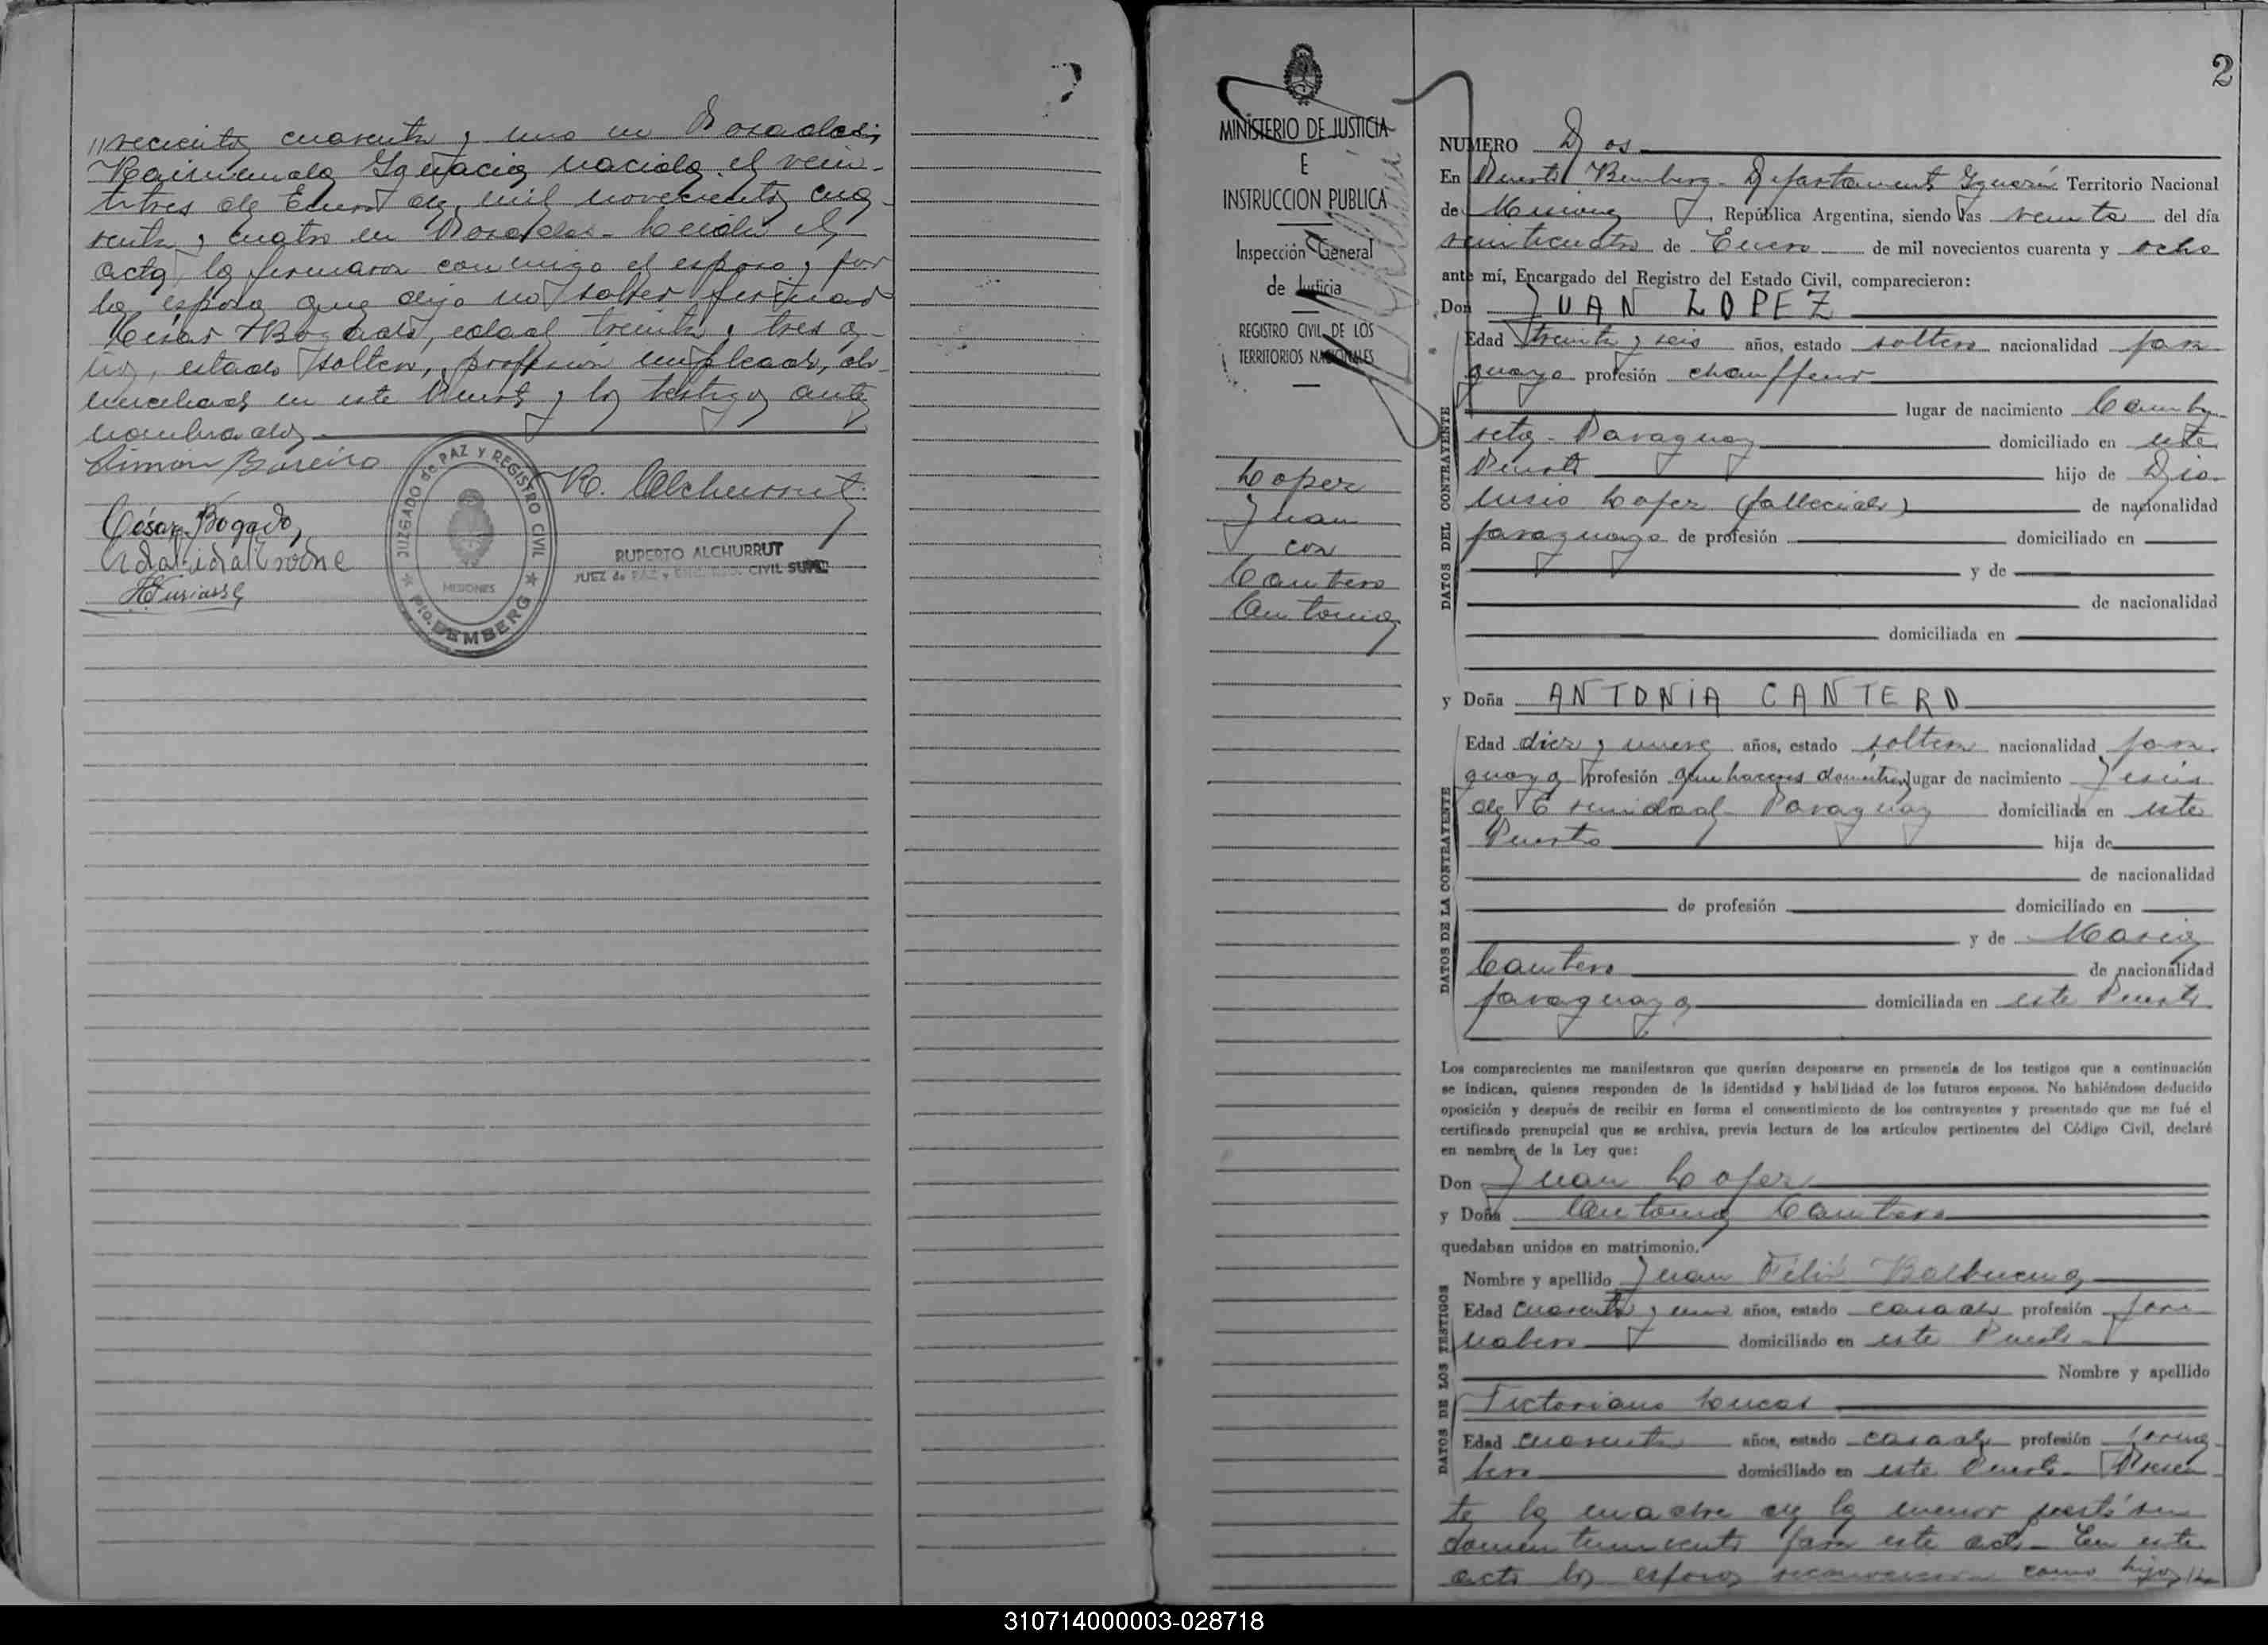 //vecientos cuarenta y uno en Posadas;
Raimunda Ignacia nacida el vein-
titres de Enero de mil novecientos cua-
renta y cuatro en Posadas - Leida el
acta, la firmaron conmigo el esposo y por
la esposa que dijo no saber firmar
César Bogado, edad treinta y tres a-
ños, estado soltero, profesion empleado, do-
miciliado en este Puerto y los testigos ante
nombrados
Simón Bareiro
R. Alchurrut
César Bogado,
JUZGADO de PAZ y REGISTRO CIVIL
MISIONES
Pto. BEMBERG
RUPERTO ALCHURRUT
JUEZ de PAZ y ENC. REG. CIVIL SUPL.
2
MINISTERIO DE JUSTICIA
E
INSTRUCCION PUBLICA
Inspección General
de Justicia
REGISTRO CIVIL DE LOS
TERRITORIOS NACIONALES
Lopez
Juan
con
Cantero
Antonia
NUMERO Dos
En Puerto Bemberg - Departamento Iguazú Territorio Nacional
de Misiones, República Argentina, siendo las veinte del día
veinticuatro de Enero de mil novecientos cuarenta y ocho
ante mí, Encargado del Registro del Estado Civil, comparecieron:
Don JUAN LOPEZ
DATOS DEL CONTRAYENTE
Edad treinta y seis años, estado soltero nacionalidad para
guaya profesión chauffeur
lugar de nacimiento Camby
reta - Paraguay domiciliado en este
Puerto hijo de Dio
nisio Lopez (fallecido) de nacionalidad
paraguaya de profesión domiciliado en
y de
de nacionalidad
domiciliada en
y Doña ANTONIA CANTERO
DATOS DE LA CONTRAYENTE
Edad diez y nueve años, estado soltera nacionalidad para
guaya profesión quehaceres domésticos lugar de nacimiento Jesús
de Trinidad - Paraguay domiciliada en este
Puerto hija de
de nacionalidad
de profesión domiciliado en
y de María
Cantero de nacionalidad
paraguaya domiciliada en este Puerto
Los comparecientes me manifestaron que querían desposarse en presencia de los testigos que a continuación
se indican, quienes responden de la identidad y habilidad de los futuros esposos. No habiéndose deducido
oposición y después de recibir en forma el consentimiento de los contrayentes y presentado que me fué el
certificado prenupcial que se archiva, previa lectura de los artículos pertinentes del Código Civil, declaré
en nombre de la Ley que:
Don Juan Lopez
y Doña Antonia Cantero
quedaban unidos en matrimonio.
DATOS DE LOS TESTIGOS
Nombre y apellido Juan Félix Balbuena
Edad cuarenta y uno años, estado casado profesión jor
nalero domiciliado en este Puerto -
Nombre y apellido
Victoriano Lucas
Edad cuarenta años, estado casado profesión jorna
lero domiciliado en este Puerto - Presen
te la madre de la menor prestó su
consentimiento para este acto - En este
acto los esposos reconocieron como hijos
310714000003-028718